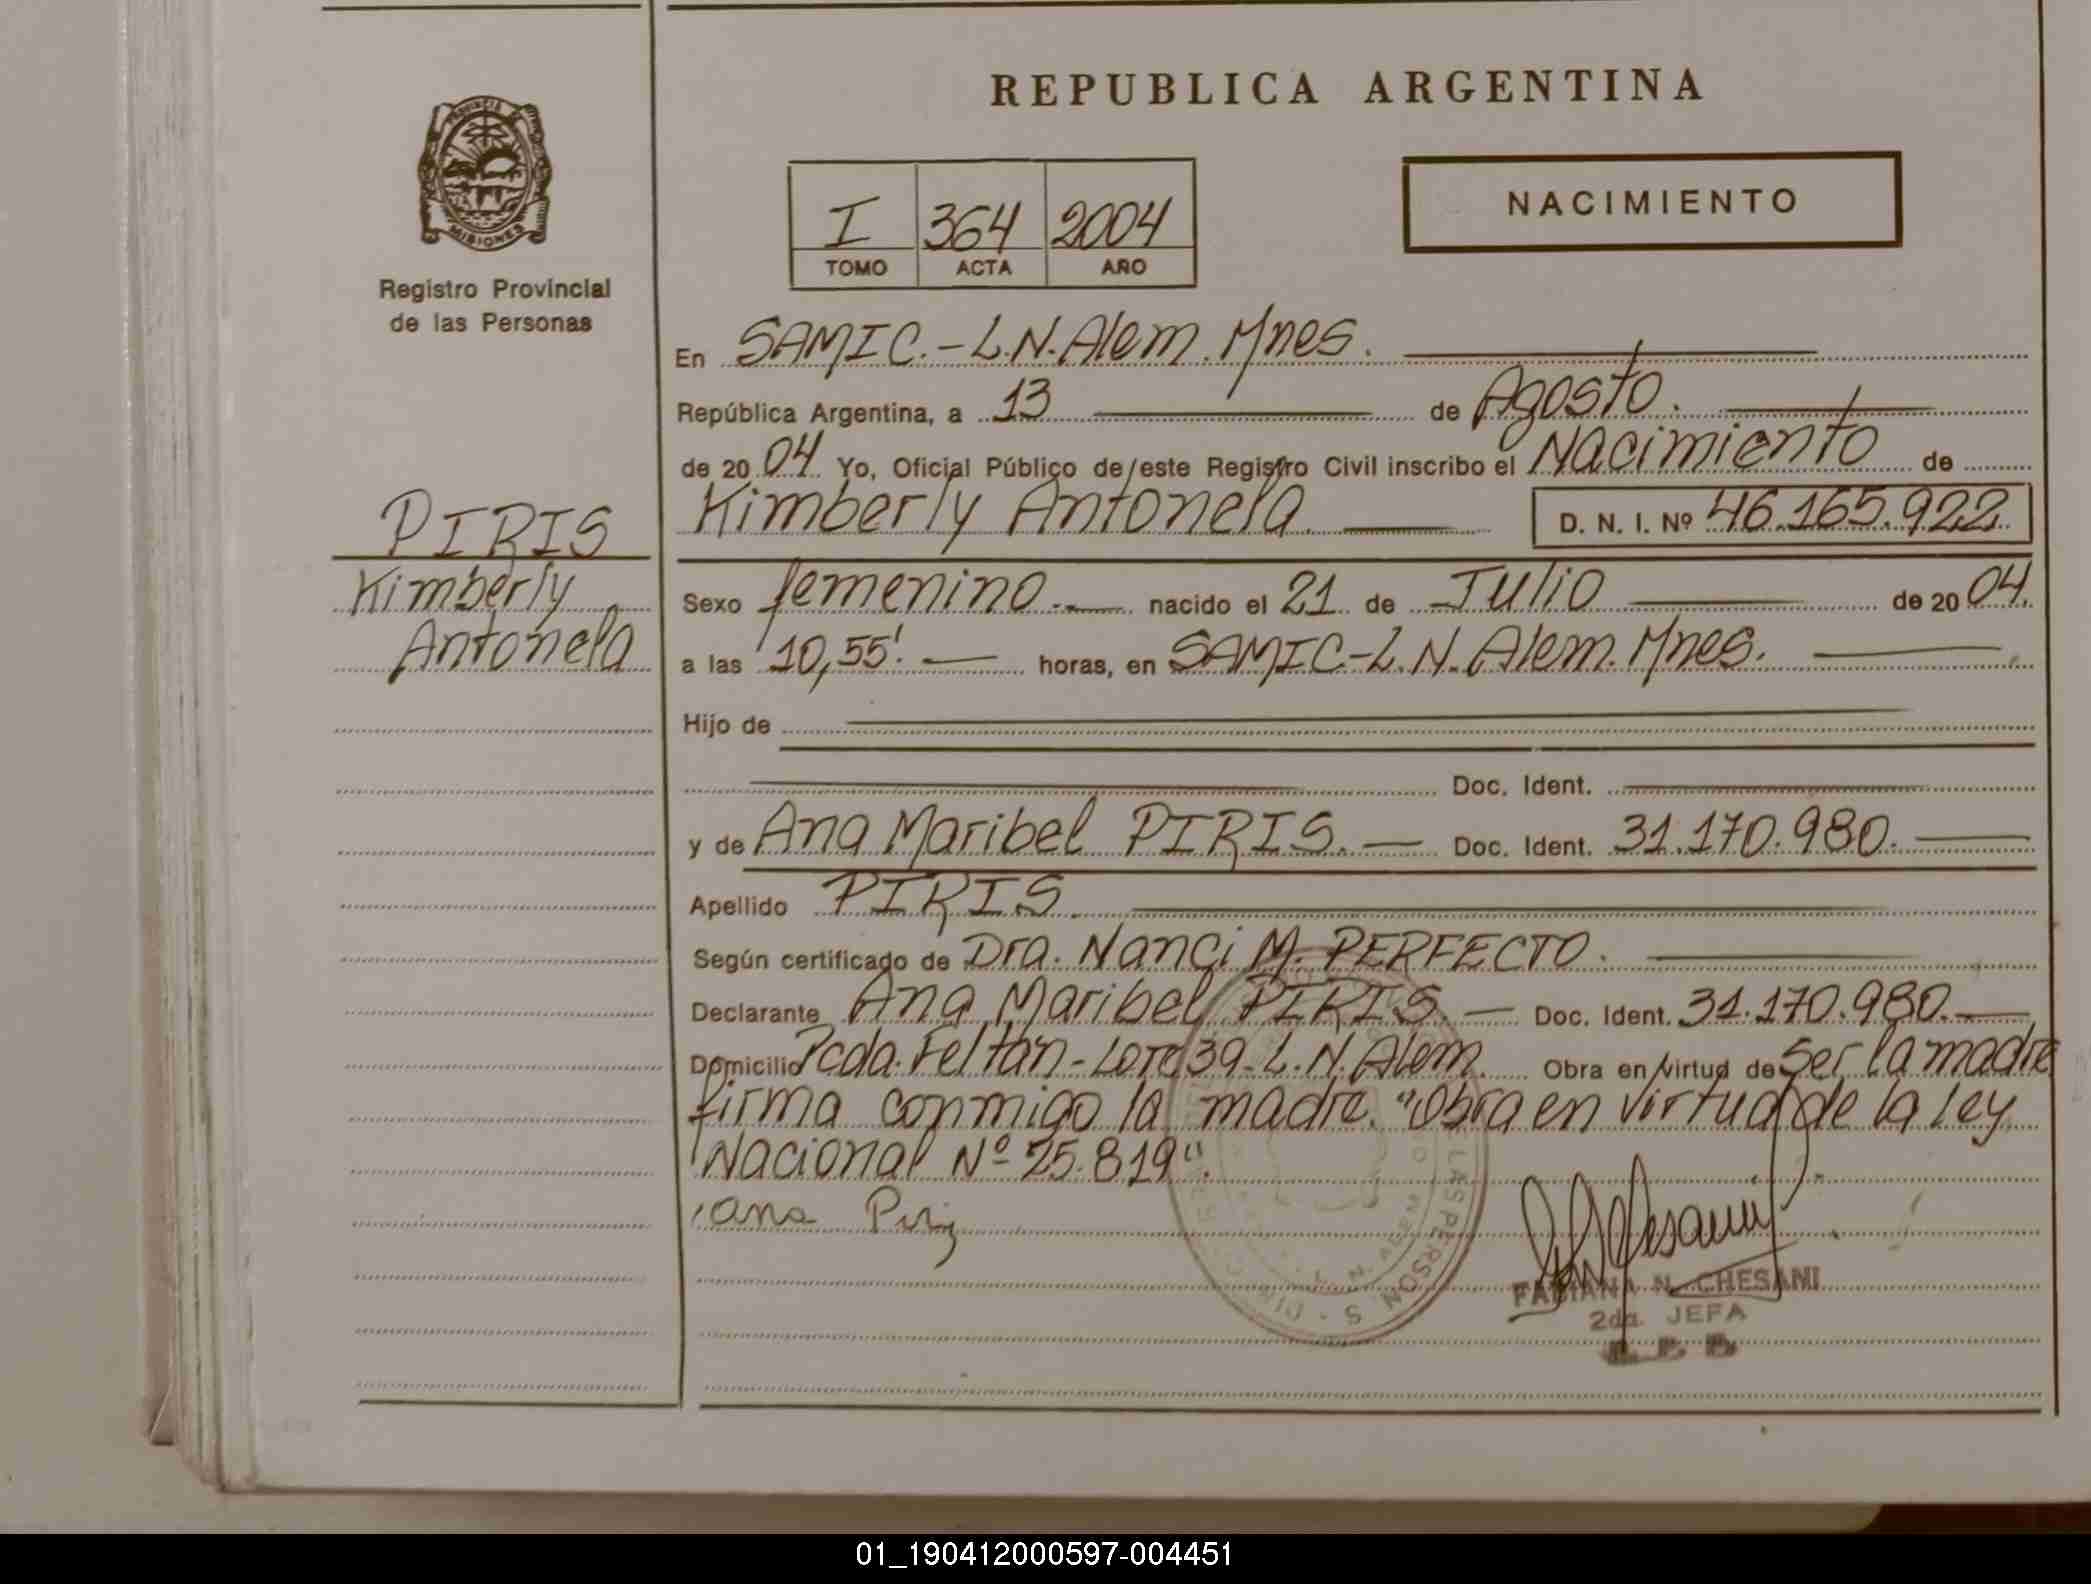 REPUBLICA ARGENTINA
PROVINCIA
MISIONES
Registro Provincial
de las Personas
I 364 2004
TOMO ACTA AÑO
NACIMIENTO
En SAMIC.-L.N.Alem.Mnes.
República Argentina, a 13 de Agosto.
de 2004 Yo, Oficial Público de este Registro Civil inscribo el Nacimiento de
Kimberly Antonela. D. N. I. Nº 46.165.922
PIRIS
Kimberly
Antonela
Sexo femenino.- nacido el 21 de Julio de 2004.
a las 10,55'. horas, en SAMIC-L.N.Alem.Mnes.
Hijo de
Doc. Ident.
y de Ana Maribel PIRIS. Doc. Ident. 31.170.980.
Apellido PIRIS.
Según certificado de Dra. Nanci M. PERFECTO.
Declarante Ana Maribel PIRIS. Doc. Ident. 31.170.980.
Domicilio Pcda. Feltan-Lote 39-L.N.Alem. Obra en virtud de Ser la madre
firma conmigo la madre. "Obra en virtud de la ley
Nacional Nº 25.819".
Ana Piriz
LAS PERSONAS - DIR
L. N. ALEM
FABIANA N. CHESANI
2da. JEFA
01_190412000597-004451